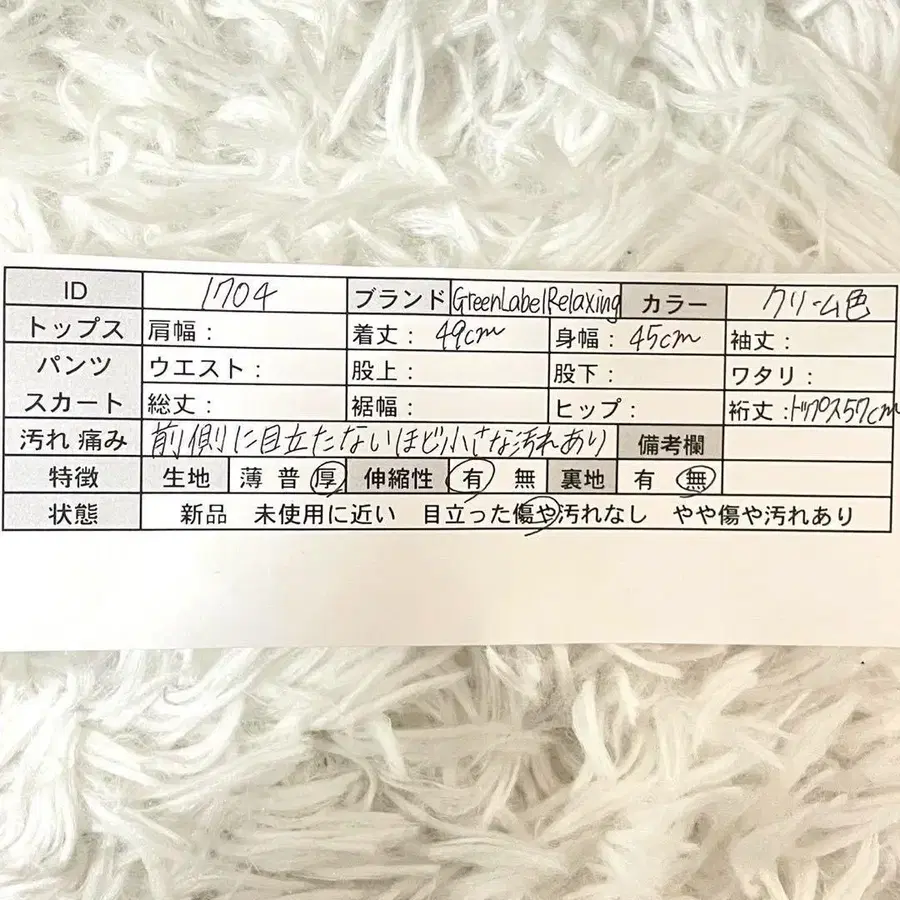 ID 1704 ブランド GreenLabelRelaxing カラー クリーム色
トップス 肩幅： 着丈：49cm 身幅：45cm 袖丈：
パンツ ウエスト： 股上： 股下： ワタリ：
スカート 総丈： 裾幅： ヒップ： 裄丈：トップス57cm
汚れ 痛み 前側に目立たないほど小さな汚れあり 備考欄
特徴 生地 薄 普 厚 伸縮性 有 無 裏地 有 無
状態 新品 未使用に近い 目立った傷や汚れなし やや傷や汚れあり